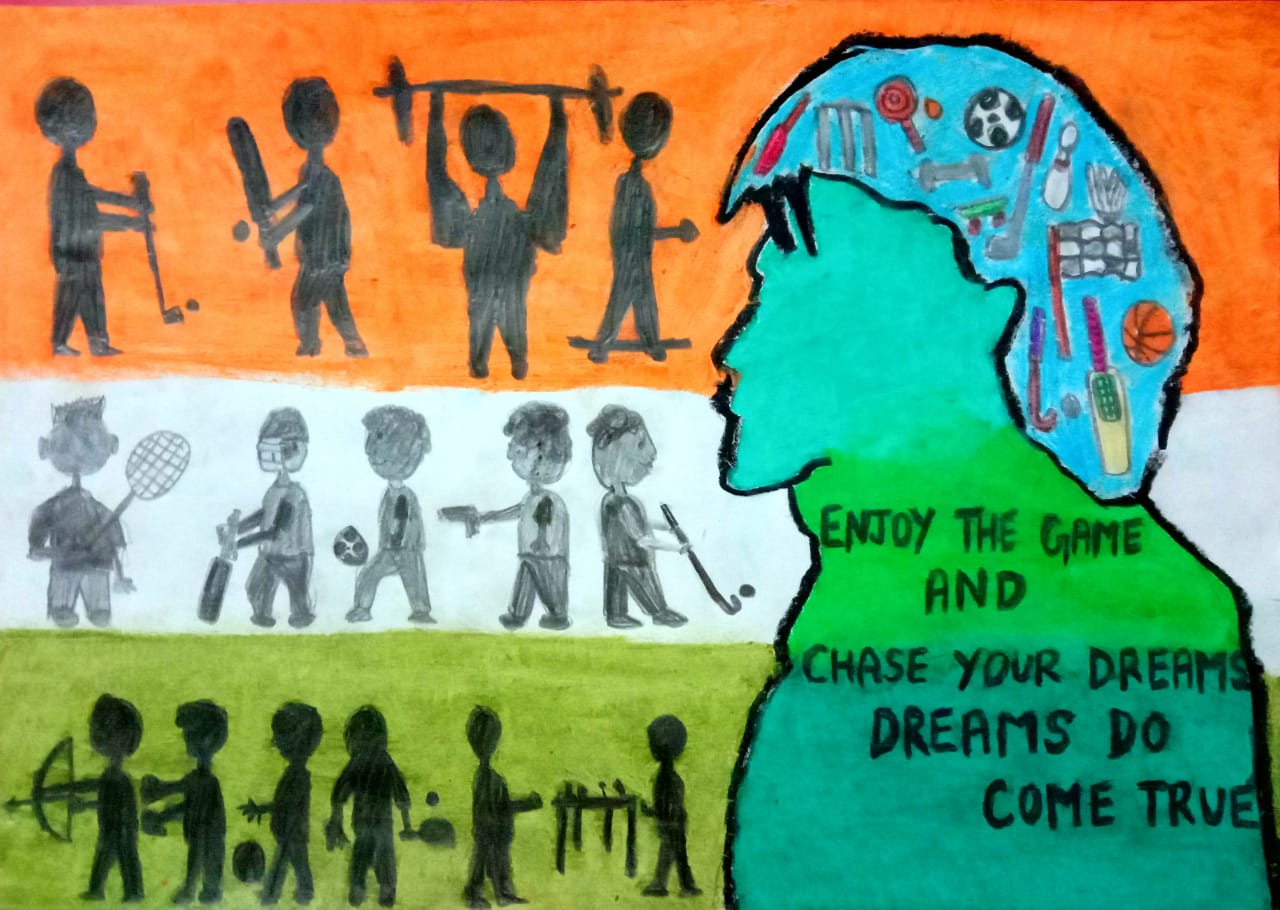 ENJOY THE GAME
AND
CHASE YOUR DREAMS
DREAMS DO
COME TRUE